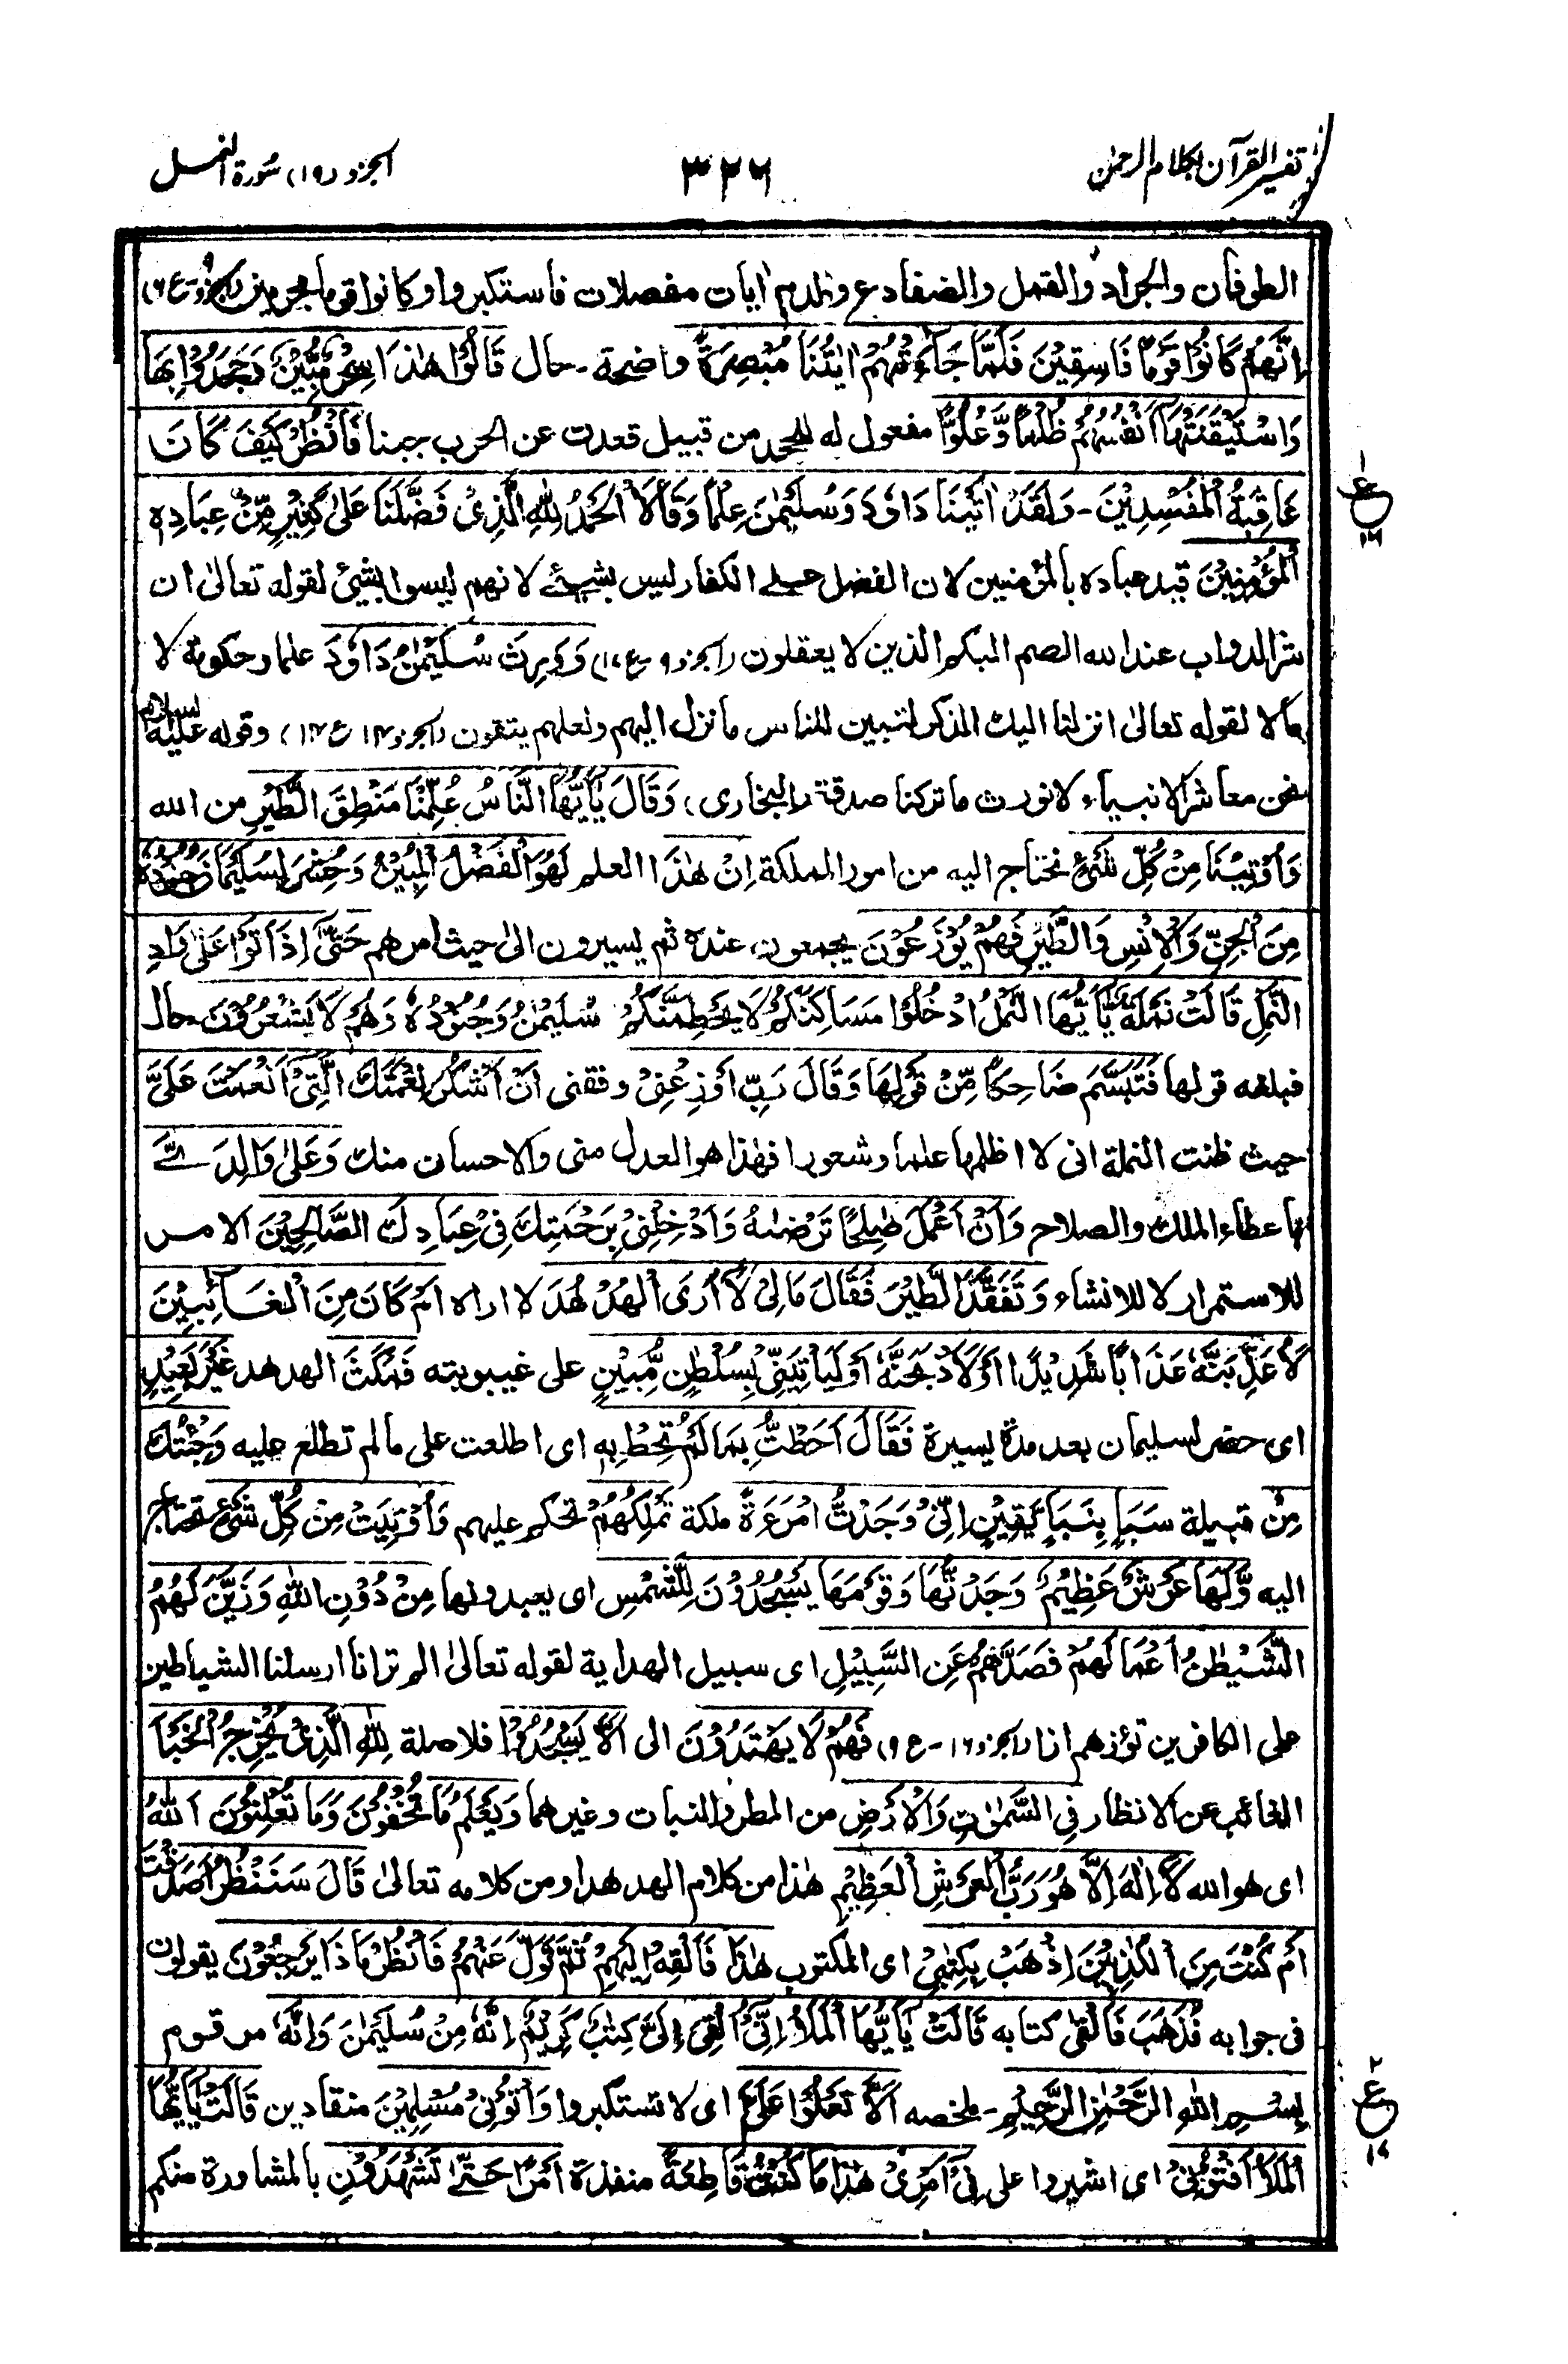 تفسير القرآن بكلام الرحمٰن
٣٢٦
الجزو (١٩) سُورة النمل
الطوفان والجراد والقمل والضفادع والدم اٰيات مفصلات فاستكبروا وكانوا قوما مجرمين (الجزو ٩ - ع ٦)
اِنَّهُمْ كَانُوْا قَوْمًا فَاسِقِيْنَ فَلَمَّا جَآءَتْهُمْ اٰيٰتُنَا مُبْصِرَةً واضحة - حال قَالُوْا هٰذَا سِحْرٌ مُّبِيْنٌ وَجَحَدُوْا بِهَا
وَاسْتَيْقَنَتْهَآ اَنْفُسُهُمْ ظُلْمًا وَّعُلُوًّا مفعول له للجحد من قبيل قعدت عن الحرب جبنا فَانْظُرْ كَيْفَ كَانَ
عَاقِبَةُ الْمُفْسِدِيْنَ - وَلَقَدْ اٰتَيْنَا دَاوٗدَ وَسُلَيْمٰنَ عِلْمًا وَقَالَا الْحَمْدُ لِلّٰهِ الَّذِيْ فَضَّلَنَا عَلٰى كَثِيْرٍ مِّنْ عِبَادِهِ
الْمُؤْمِنِيْنَ قيد عباده بالمؤمنين لان الفضل على الكفار ليس بشيئ لانهم ليسوا بشيئ لقوله تعالىٰ ان
شر الدواب عند الله الصم البكم الذين لا يعقلون (الجزو ٩ - ع ١٧) وَوَرِثَ سُلَيْمٰنُ دَاوٗدَ علما وحكومة لا
مالا لقوله تعالىٰ انزلنا اليك الذكر لتبين للناس ما نزل اليهم ولعلهم يتقون (الجزو ١٤ ع ١٢) وقوله عليه السلام
نحن معاشر الانبياء لا نورث ما تركنا صدقة (البخارى) وَقَالَ يٰٓاَيُّهَا النَّاسُ عُلِّمْنَا مَنْطِقَ الطَّيْرِ من الله
وَاُوْتِيْنَا مِنْ كُلِّ شَيْءٍ نحتاج اليه من امور المملكة اِنَّ هٰذَا العلم لَهُوَ الْفَضْلُ الْمُبِيْنُ وَحُشِرَ لِسُلَيْمٰنَ جُنُوْدُهٗ
مِنَ الْجِنِّ وَالْاِنْسِ وَالطَّيْرِ فَهُمْ يُوْزَعُوْنَ يجمعون عنده ثم يسيرون الىٰ حيث امرهم حَتّٰٓى اِذَآ اَتَوْا عَلٰى وَادِ
النَّمْلِ قَالَتْ نَمْلَةٌ يّٰٓاَيُّهَا النَّمْلُ ادْخُلُوْا مَسَاكِنَكُمْ لَا يَحْطِمَنَّكُمْ سُلَيْمٰنُ وَجُنُوْدُهٗ وَهُمْ لَا يَشْعُرُوْنَ حال
فبلغه قولها فَتَبَسَّمَ ضَاحِكًا مِّنْ قَوْلِهَا وَقَالَ رَبِّ اَوْزِعْنِيْ وفقنى اَنْ اَشْكُرَ نِعْمَتَكَ الَّتِيْ اَنْعَمْتَ عَلَيَّ
حيث ظنت النملة انى لا اظلمها علما وشعورا فهٰذا هو العدل منى والاحسان منك وَعَلٰى وَالِدَيَّ
باعطاء الملك والصلاح وَاَنْ اَعْمَلَ صٰلِحًا تَرْضٰىهُ وَاَدْخِلْنِيْ بِرَحْمَتِكَ فِيْ عِبَادِكَ الصَّالِحِيْنَ الامر
للاستمرار لا للانشاء وَتَفَقَّدَ الطَّيْرَ فَقَالَ مَا لِيَ لَآ اَرَى الْهُدْهُدَ لا اراه اَمْ كَانَ مِنَ الْغَآئِبِيْنَ
لَاُعَذِّبَنَّهٗ عَذَابًا شَدِيْدًا اَوْ لَاَذْبَحَنَّهٗٓ اَوْ لَيَاْتِيَنِّيْ بِسُلْطٰنٍ مُّبِيْنٍ على غيبوبته فَمَكَثَ الهدهد غَيْرَ بَعِيْدٍ
اى حضر لسليمان بعد مدة يسيرة فَقَالَ اَحَطْتُّ بِمَا لَمْ تُحِطْ بِهٖ اى اطلعت على ما لم تطلع عليه وَجِئْتُكَ
مِنْ قبيلة سَبَاٍ بِنَبَاٍ يَّقِيْنٍ اِنِّيْ وَجَدْتُّ امْرَءَةً ملكة تَمْلِكُهُمْ تحكم عليهم وَاُوْتِيَتْ مِنْ كُلِّ شَيْءٍ تحتاج
اليه وَّلَهَا عَرْشٌ عَظِيْمٌ وَجَدْتُّهَا وَقَوْمَهَا يَسْجُدُوْنَ لِلشَّمْسِ اى يعبدونها مِنْ دُوْنِ اللّٰهِ وَزَيَّنَ لَهُمُ
الشَّيْطٰنُ اَعْمَالَهُمْ فَصَدَّهُمْ عَنِ السَّبِيْلِ اى سبيل الهداية لقوله تعالىٰ الم تر انا ارسلنا الشياطين
على الكافرين تؤزهم ازا (الجزو ١٦ - ع ٩) فَهُمْ لَا يَهْتَدُوْنَ الى اَلَّا يَسْجُدُوْا فلا صلة لِلّٰهِ الَّذِيْ يُخْرِجُ الْخَبْاَ
الغائب عن الانظار فِي السَّمٰوٰتِ وَالْاَرْضِ من المطر والنبات وغيرهما وَيَعْلَمُ مَا تُخْفُوْنَ وَمَا تُعْلِنُوْنَ اَللّٰهُ
اى هو الله لَآ اِلٰهَ اِلَّا هُوَ رَبُّ الْعَرْشِ الْعَظِيْمِ هٰذا من كلام الهدهد او من كلامه تعالىٰ قَالَ سَنَنْظُرُ اَصَدَقْتَ
اَمْ كُنْتَ مِنَ الْكٰذِبِيْنَ اِذْهَبْ بِكِتٰبِيْ اى المكتوب هٰذَا فَاَلْقِهْ اِلَيْهِمْ ثُمَّ تَوَلَّ عَنْهُمْ فَانْظُرْ مَاذَا يَرْجِعُوْنَ يقولون
فى جوابه فذَهَبَ فَاَلْقٰى كتابه قَالَتْ يٰٓاَيُّهَا الْمَلَؤُا اِنِّيْٓ اُلْقِيَ اِلَيَّ كِتٰبٌ كَرِيْمٌ اِنَّهٗ مِنْ سُلَيْمٰنَ وَاِنَّهٗ مرقوم
بِسْمِ اللّٰهِ الرَّحْمٰنِ الرَّحِيْمِ - ملخصه اَلَّا تَعْلُوْا عَلَيَّ اى لا تستكبروا وَاْتُوْنِيْ مُسْلِمِيْنَ منقادين قَالَتْ يٰٓاَيُّهَا
الْمَلَؤُا اَفْتُوْنِيْ اى اشيروا على فِيْٓ اَمْرِيْ هٰذا مَا كُنْتُ قَاطِعَةً منفذة اَمْرًا حَتّٰى تَشْهَدُوْنِ بالمشاورة منكم
١
ع
١٦
٢
ع
١٧